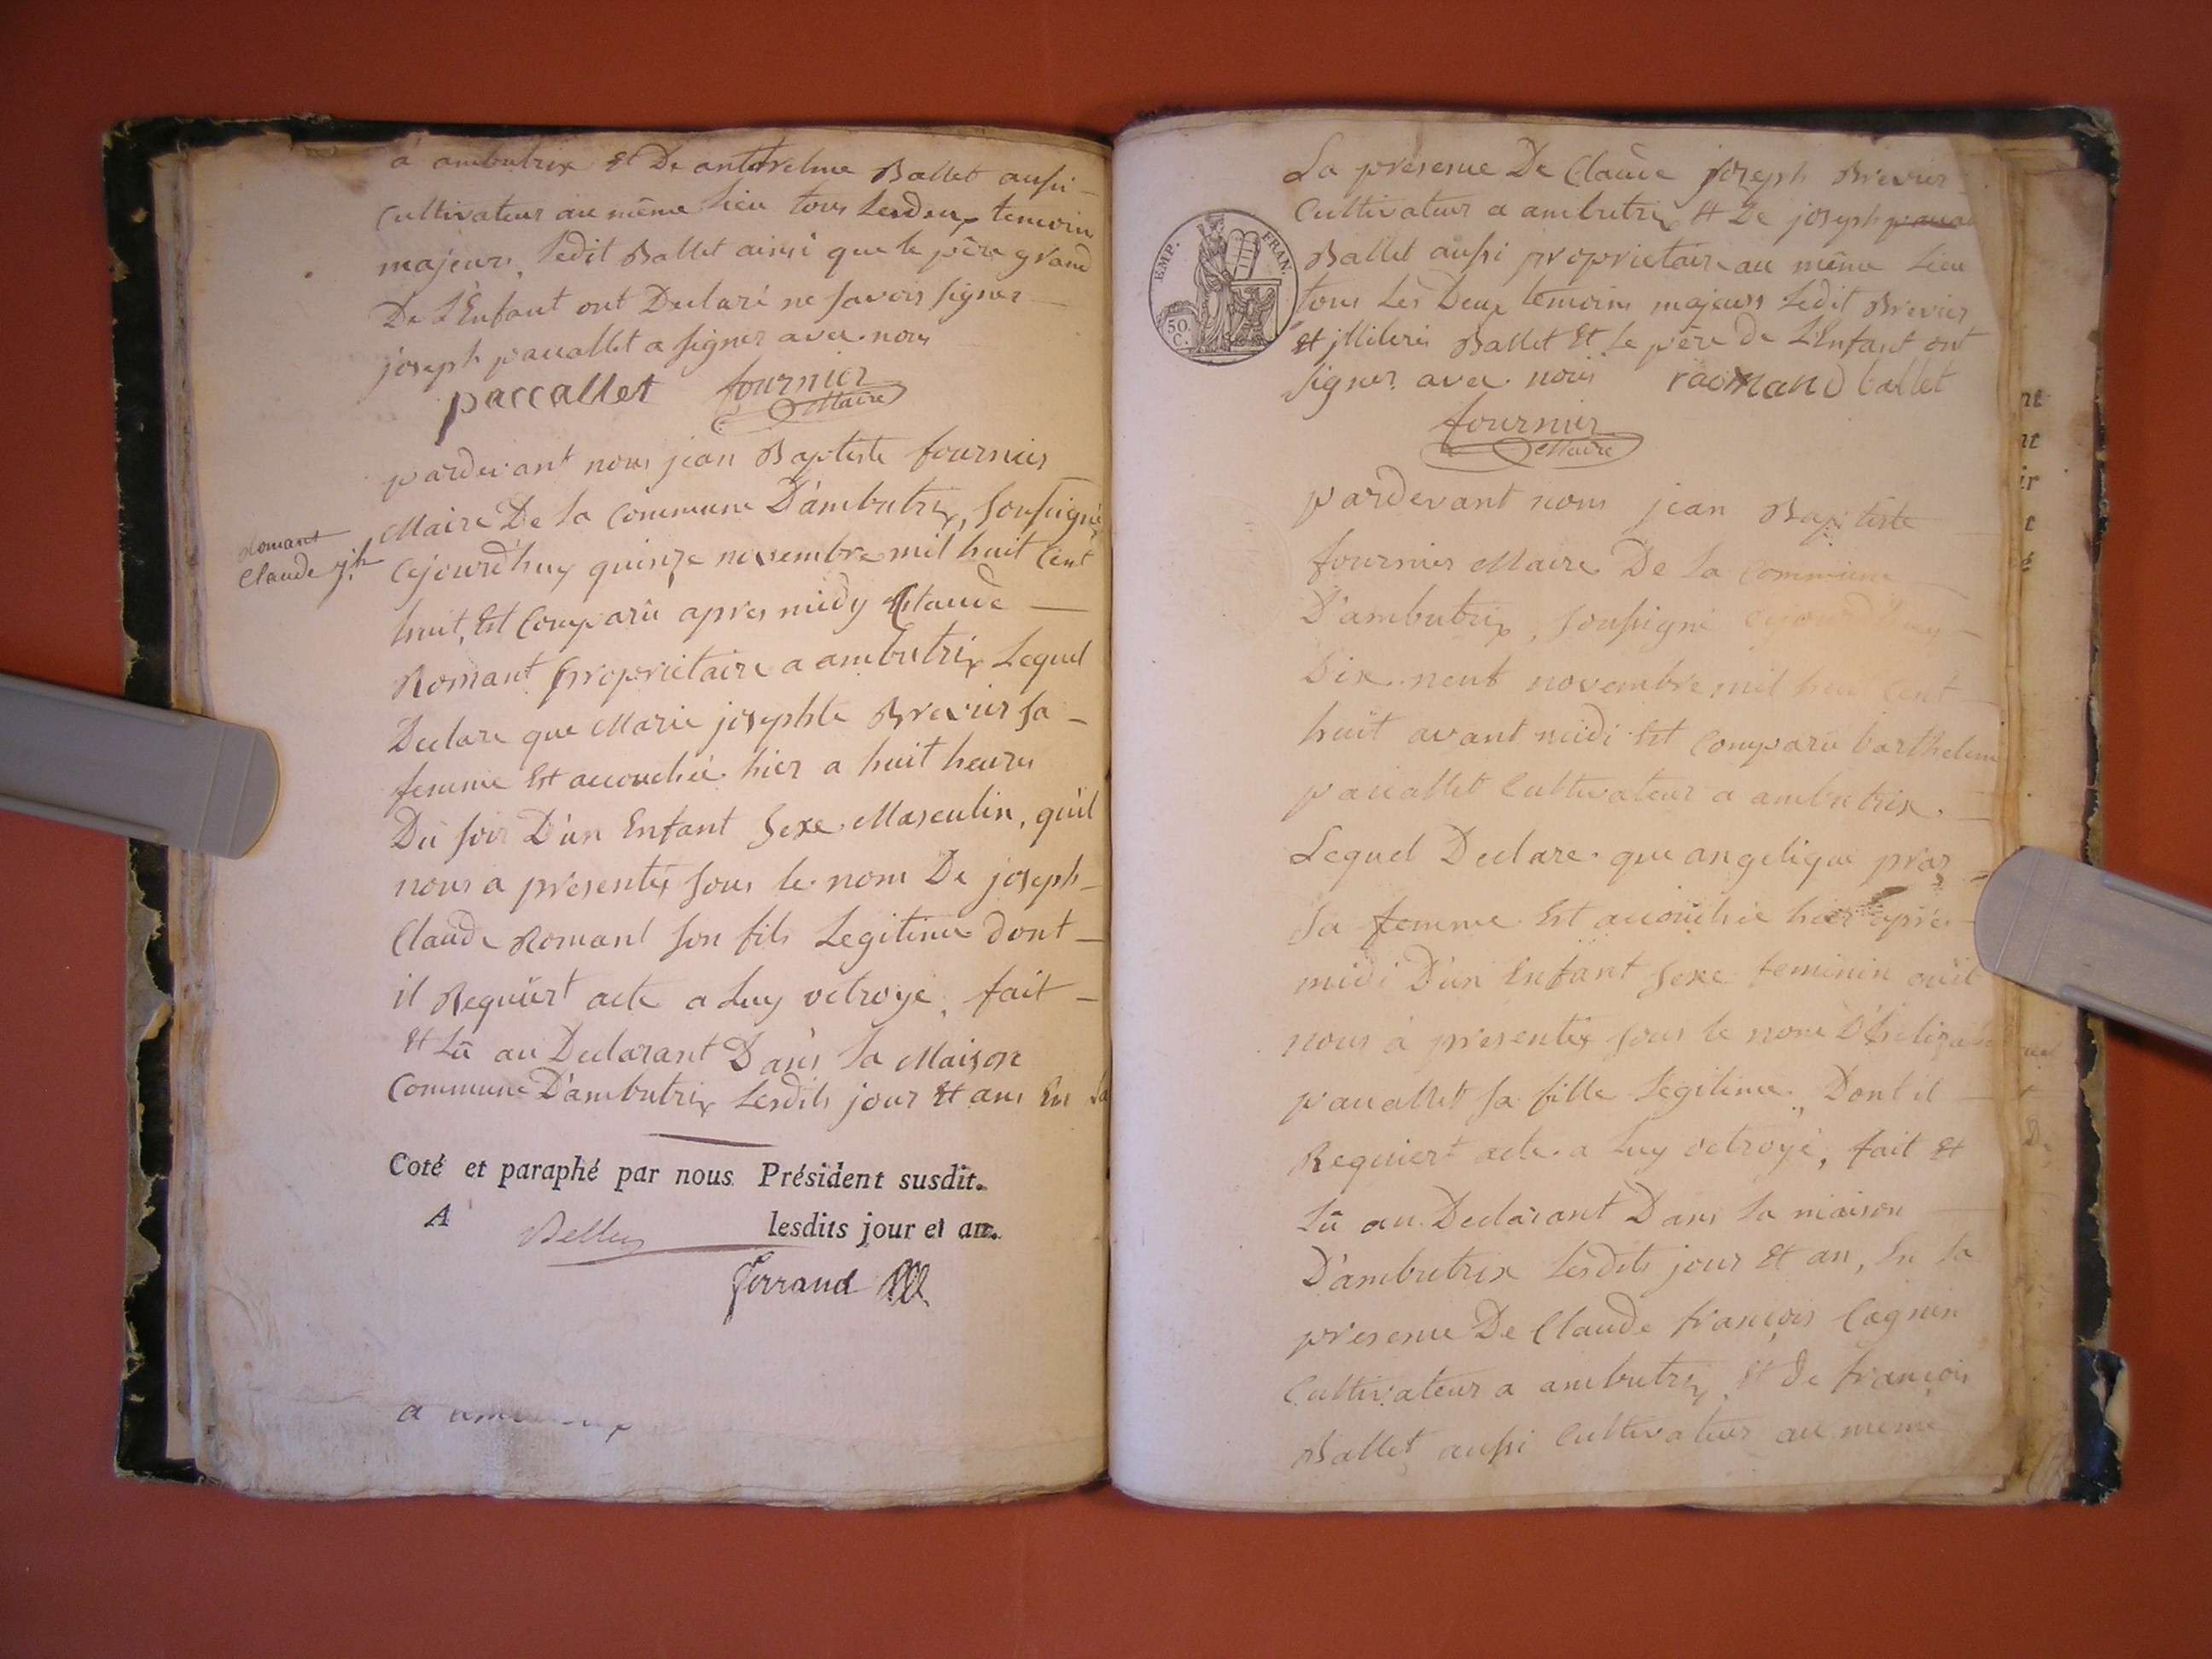 à ambutrix Et De anthelme Ballet aussi
Cultivateur au même Lieu tous Lesdeux temoin
majeurs, Ledit Ballet ainsi que le père grand
De L'Enfant ont Declaré ne savoir signer
joseph paccallet a signer avec nous
paccallet fournier
Maire
pardevant nous jean Baptiste fournier
Maire De La Commune D'ambutrix, soussigné
Romant
Claude jh
Cejourd'huy quinze novembre mil huit Cent
huit, Est Comparû apres midy Claude
Romant propriétaire a ambutrix Lequel
Declare que Marie josephte Brevier sa
femme Est accouchée hier a huit heures
Du soir D'un Enfant sexe Masculin, qu'il
nous a presentés sous le nom De joseph
Claude Romant son fils Legitime dont
il Requiert acte a Luy octroyé, fait
Et Lû au Declarant Dans La Maison
Commune D'ambutrix Lesdits jour Et ans En La
Coté et paraphé par nous Président susdit.
A Belley lesdits jour et an.
Ferrand
a
La presence De Claude joseph Brevier
EMP. FRAN.
50 C.
Cultivateur a ambutrix Et De joseph
Ballet aussi proprietaire au même Lieu
tous Les Deux temoins majeurs Ledit Brevier
Et jllileré Ballet Et Le père De L'Enfant ont
signer avec nous raomand ballet
fournier
Maire
pardevant nous jean Baptiste
fournier Maire De La Commune
D'ambutrix, soussigné Cejourd'huy
Dix neuf novembre mil huit Cent
huit avant midi Est Comparû barthelemi
paccallet Cultivateur a ambutrix.
Lequel Declare que angelique
Sa femme Est accouchée hier après
midi D'un Enfant sexe feminin qu'il
nous à presentés sous le nom
paccallet sa fille Legitime, Dont il
Requiert acte a Luy octroyé, fait Et
Lû au Declarant Dans La maison
D'ambutrix Lesdits jour Et an, En La
presence De Claude françois Cagnin
Cultivateur a ambutrix, Et De françois
Ballet aussi Cultivateur au meme